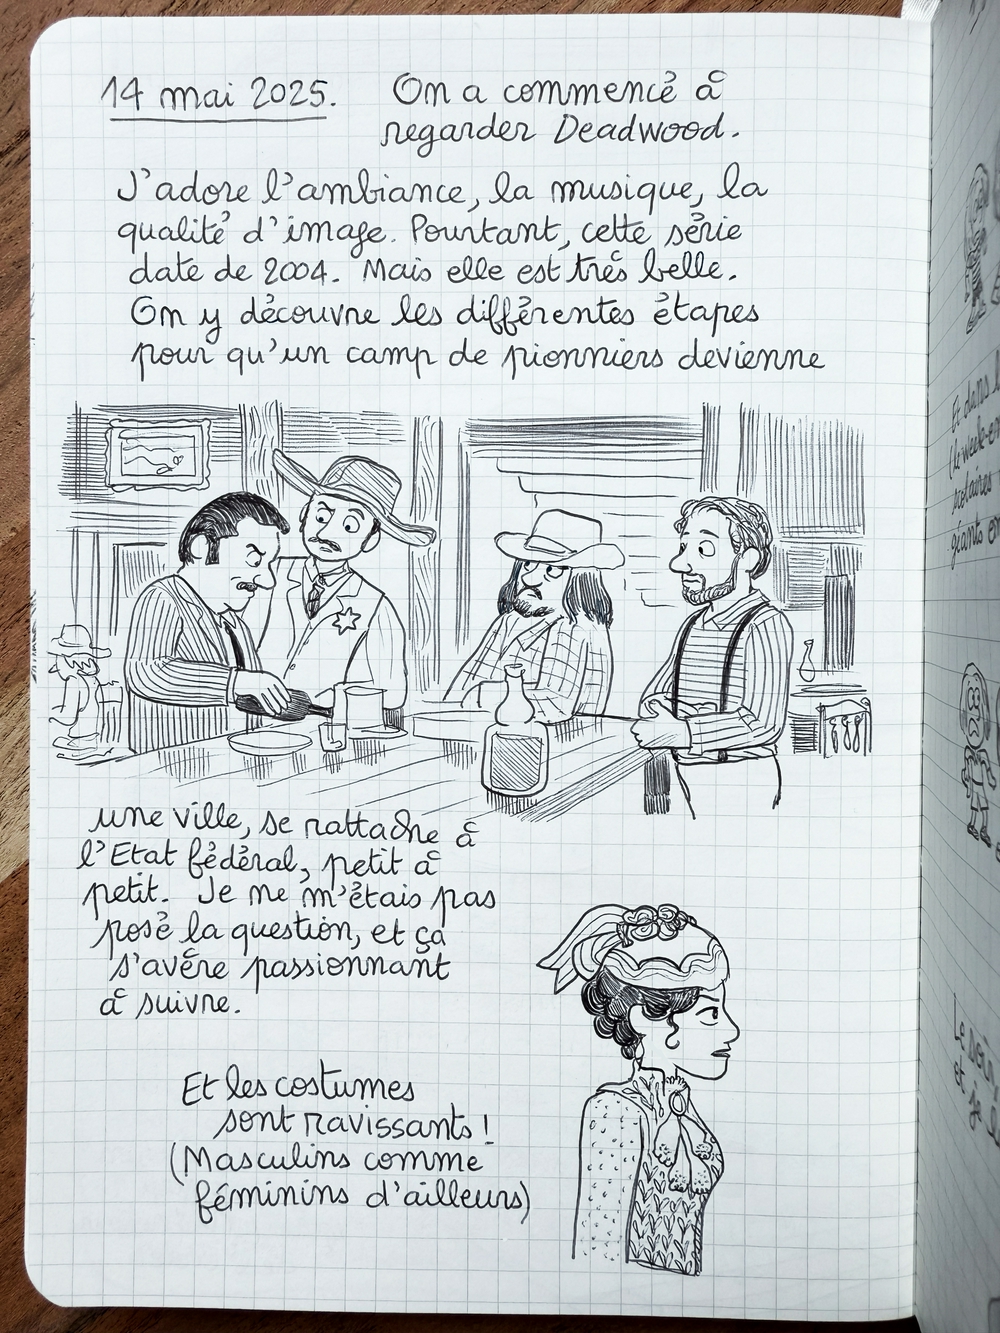 14 mai 2025. On a commencé à
regarder Deadwood.
J'adore l'ambiance, la musique, la
qualité d'image. Pourtant, cette série
date de 2004. Mais elle est très belle.
On y découvre les différentes étapes
pour qu'un camp de pionniers devienne
une ville, se rattache à
l'Etat fédéral, petit à
petit. Je ne m'étais pas
posé la question, et ça
s'avère passionnant
à suivre.
Et les costumes
sont ravissants !
(Masculins comme
féminins d'ailleurs)
Et dans
Le
et je